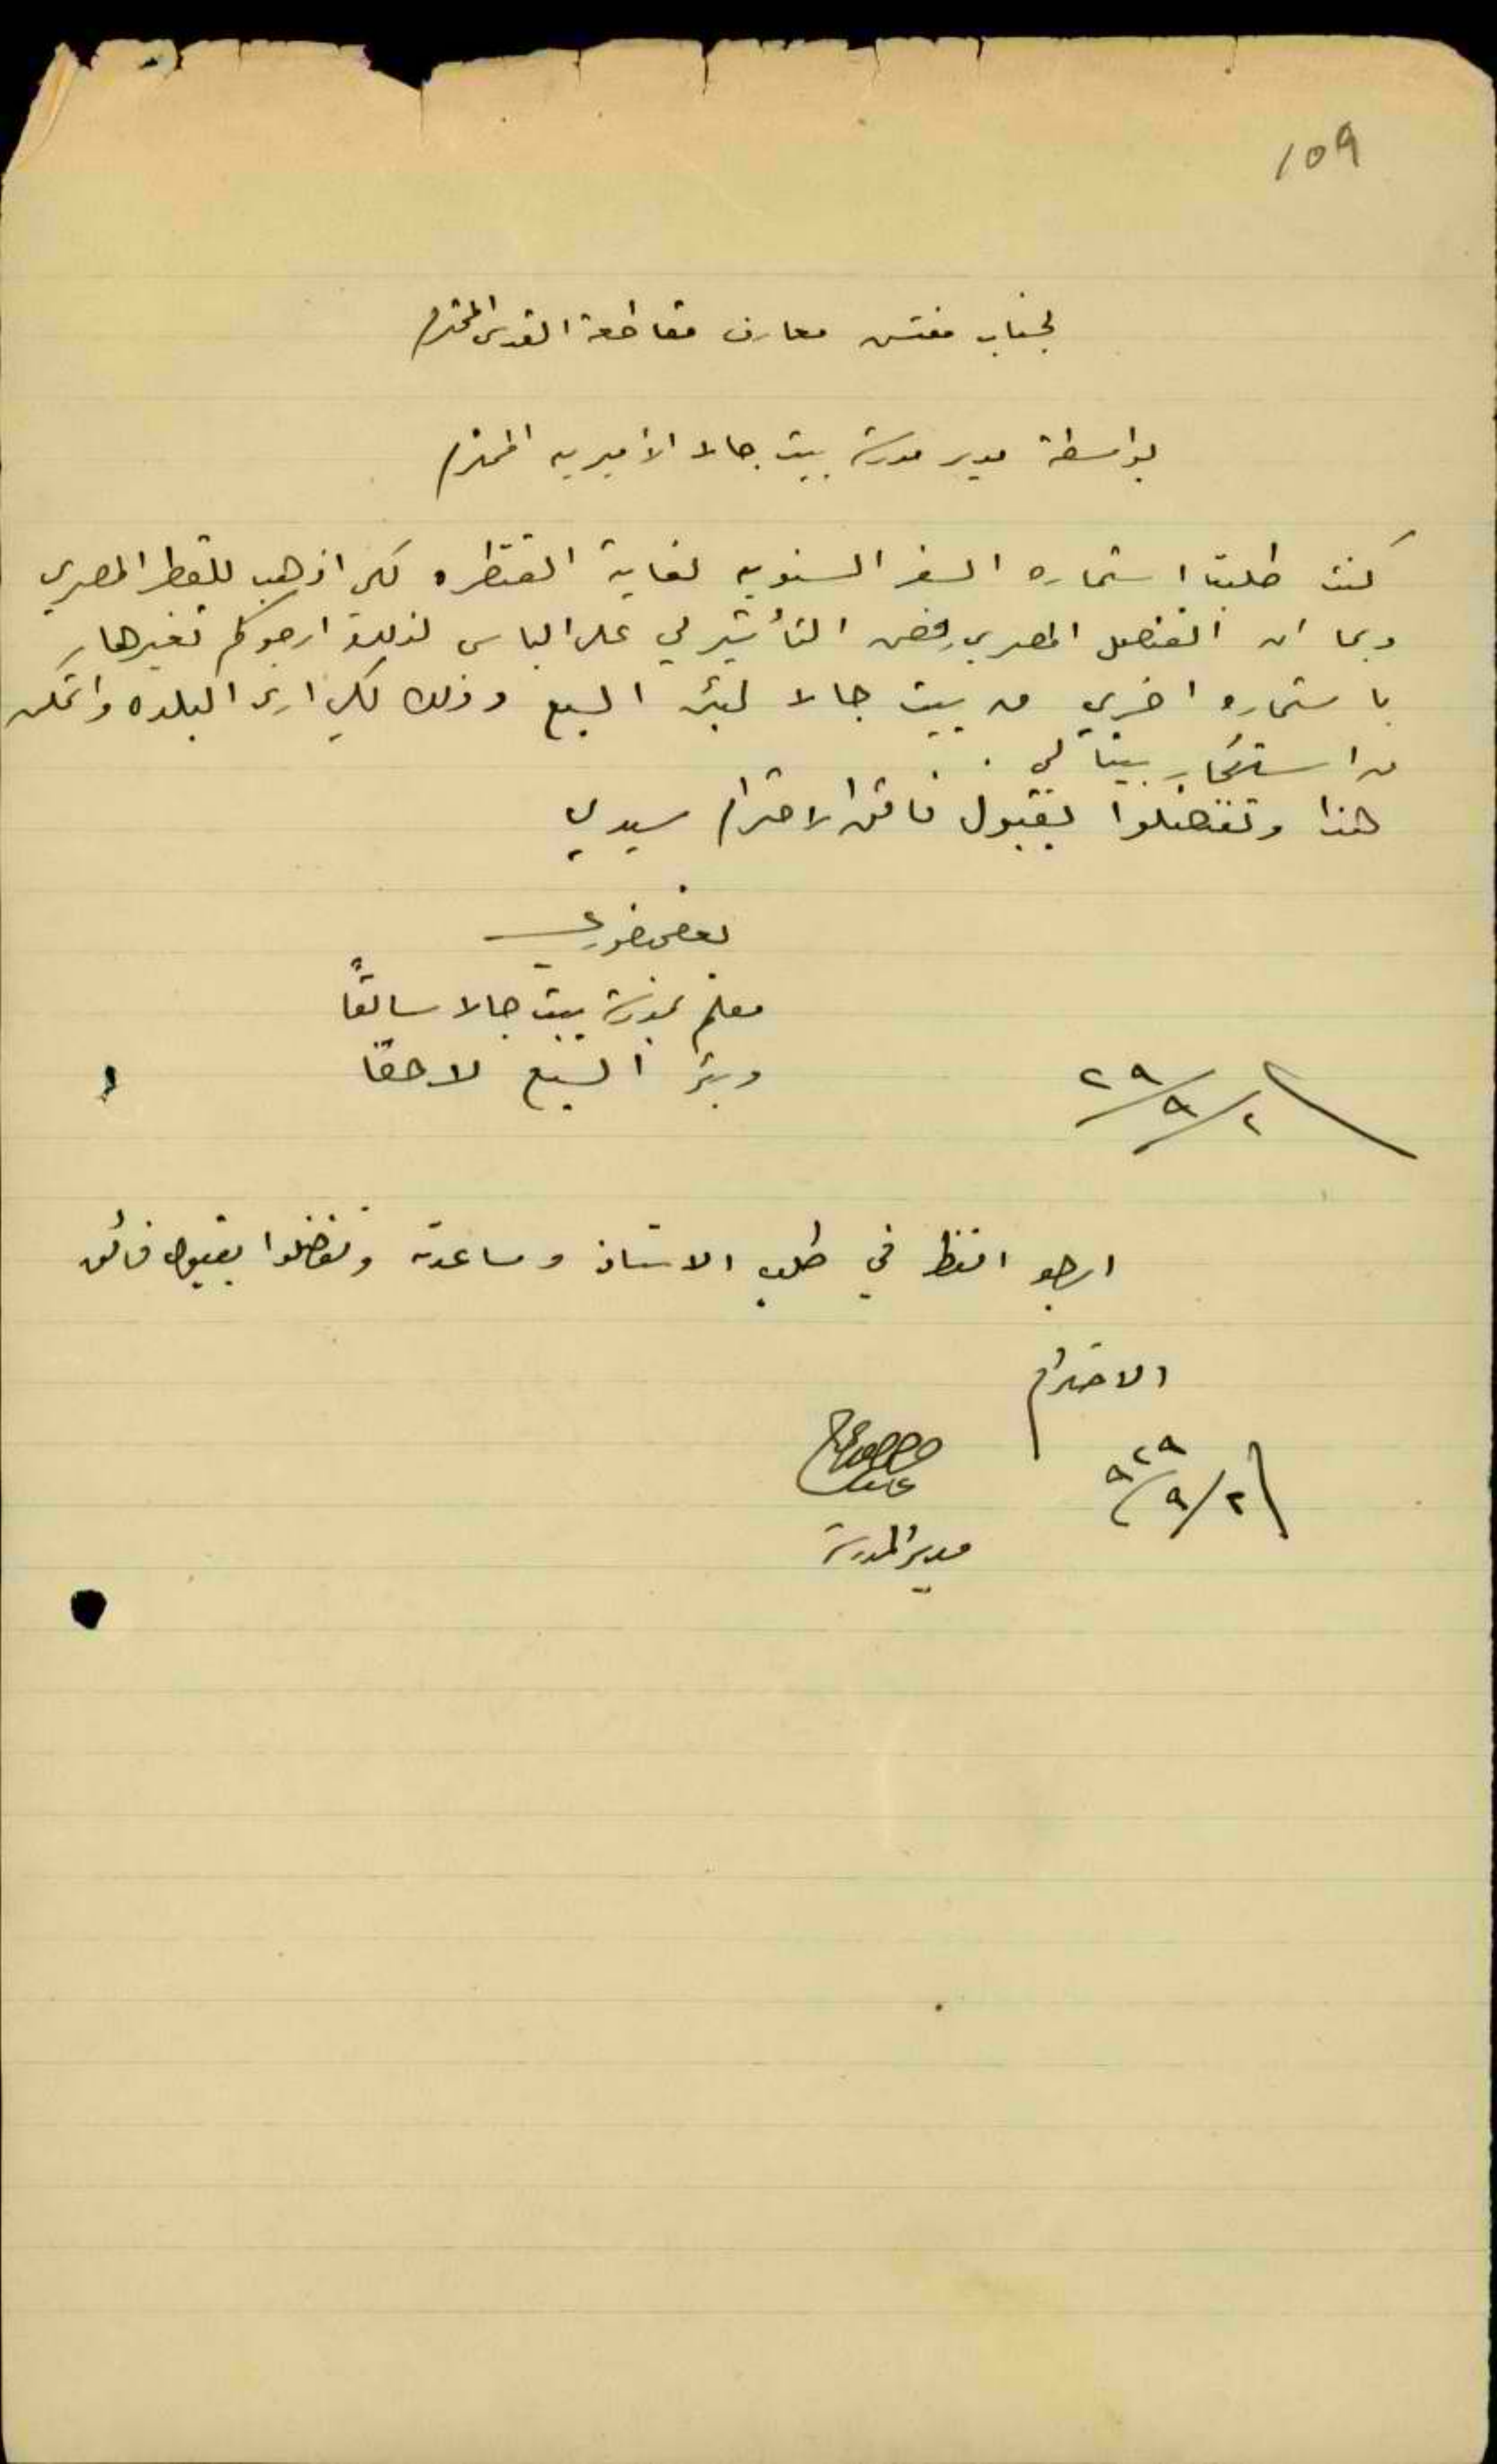 109
لجناب مفتش معارف مقاطعة القدس المحترم
بواسطة مدير مدرسة بيت جالا الأميريه المحترم
كنت طلبت استماره السفر السنويه لغاية القنطره لكي اذهب للقطر المصري
وبما ان القنصل المصري رفض التأشير لي على الباس لذلك ارجوكم تغيرها
باستماره اخرى من بيت جالا لبئر السبع وذلك لكي ارى البلده واتمكن
من استئجار بيتاً لي .
هذا وتفضلوا بقبول فائق الاحترام سيدي
خوري
معلم بمدرسة بيت جالا سابقاً
وبئر السبع لاحقاً
٢/٩/٢٩
ارجو النظر في طلب الاستاذ ومساعدته وتفضلوا بقبول فائق
الاحترام
٢/٩/٩٢٩
مدير المدرسة